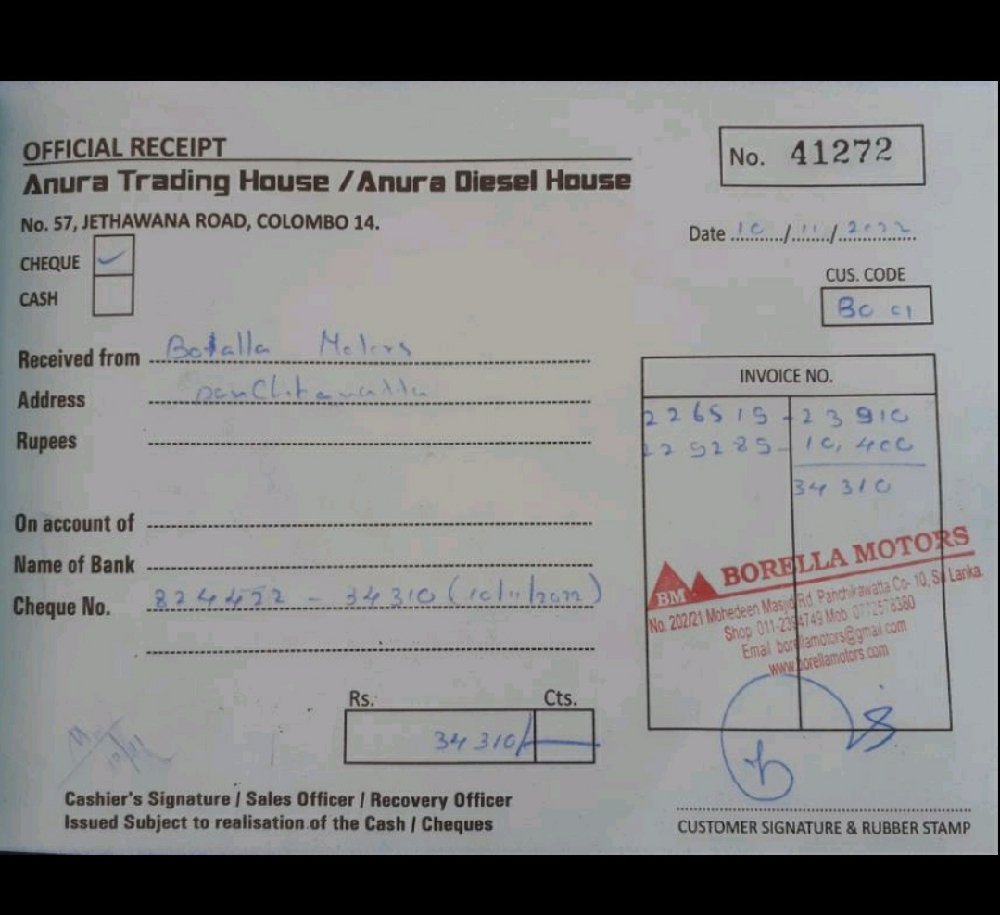 OFFICIAL RECEIPT
No. 41272
Anura Trading House / Anura Diesel House
No. 57, JETHAWANA ROAD, COLOMBO 14.
Date 10/11/2022
CHEQUE ✓
CASH
CUS. CODE
BO 01
Received from Botalla Motors
Address
Rupees
On account of
Name of Bank
Cheque No. 824422 - 34310 (10/11/2022)
INVOICE NO.
226519 - 23910
229285 - 10,400
34310
BM BORELLA MOTORS
No. 202/21 Mohedeen Masjid Rd, Panchikawatta Co- 10, Sri Lanka.
Shop 011-2394749 Mob 0712578380
Email borellamotors@gmail.com
www.borellamotors.com
Rs. Cts.
34310/-
Cashier's Signature / Sales Officer / Recovery Officer
Issued Subject to realisation of the Cash / Cheques
CUSTOMER SIGNATURE & RUBBER STAMP